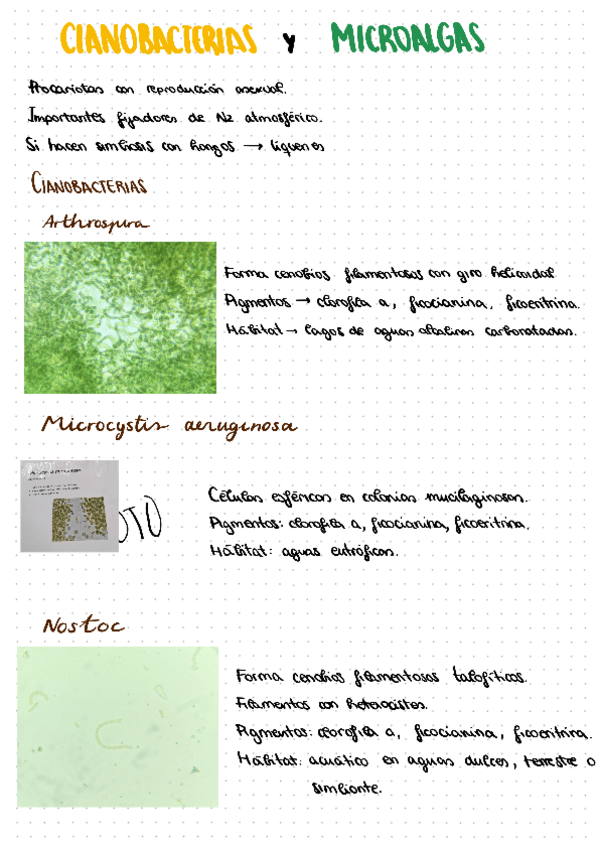 CIANOBACTERIAS y MICROALGAS
Procariotas con reproducción asexual.
Importantes fijadores de N2 atmosférico.
Si hacen simbiosis con hongos → líquenes
CIANOBACTERIAS
Arthrospira
Forma cenobios filamentosos con giro helicoidal
Pigmentos → clorofila a, ficocianina, ficoeritrina.
Hábitat → lagos de aguas alcalinas carbonatadas.
Microcystis aeruginosa
OTO
Células esféricas en colonias mucilaginosas.
Pigmentos: clorofila a, ficocianina, ficoeritrina.
Hábitat: aguas eutróficas.
Nostoc
Forma cenobios filamentosos talofíticos.
Filamentos con heterocistos.
Pigmentos: clorofila a, ficocianina, ficoeritrina.
Hábitat: acuático en aguas dulces, terrestre o
simbionte.